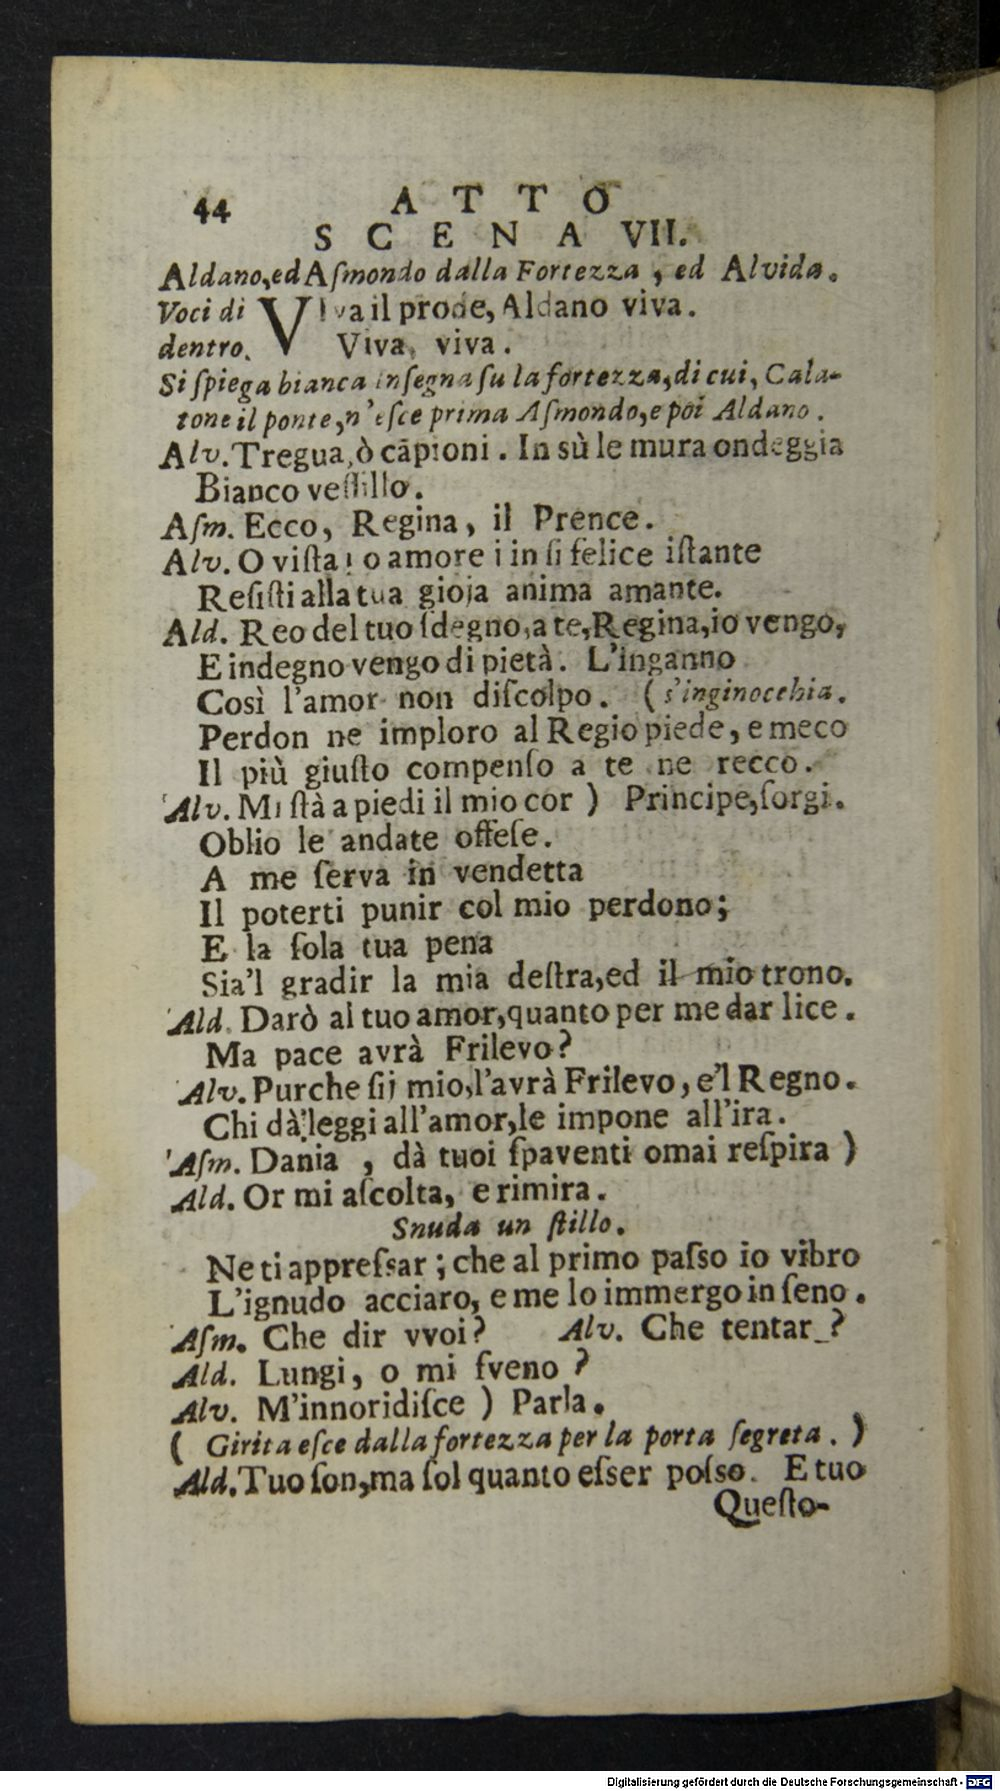 44 ATTO
SCENA VII.
Aldano, ed Aſmondo dalla Fortezza, ed Alvida.
Voci di VIva il prode, Aldano viva.
dentro. Viva, viva.
Si ſpiega bianca inſegna ſu la fortezza, di cui, Cala-
tone il ponte, n'eſce prima Aſmondo, e poi Aldano.
Alv. Tregua, ò cāpioni. In sù le mura ondeggia
Bianco veſſillo.
Aſm. Ecco, Regina, il Prence.
Alv. O viſta! o amore i in ſi felice iſtante
Reſiſti alla tua gioja anima amante.
Ald. Reo del tuo ſdegno, a te, Regina, io vengo,
E indegno vengo di pietà. L'inganno
Così l'amor non diſcolpo. (s'inginocchia.
Perdon ne imploro al Regio piede, e meco
Il più giuſto compenſo a te ne recco.
Alv. Mi ſtà a piedi il mio cor ) Principe, ſorgi.
Oblio le andate offeſe.
A me ſerva in vendetta
Il poterti punir col mio perdono;
E la ſola tua pena
Sia'l gradir la mia deſtra, ed il mio trono.
Ald. Darò al tuo amor, quanto per me dar lice.
Ma pace avrà Frilevo?
Alv. Purche ſij mio, l'avrà Frilevo, e'l Regno.
Chi dà leggi all'amor, le impone all'ira.
Aſm. Dania, dà tuoi ſpaventi omai reſpira )
Ald. Or mi aſcolta, e rimira.
Snuda un ſtillo.
Ne ti appreſsar; che al primo paſso io vibro
L'ignudo acciaro, e me lo immergo in ſeno.
Aſm. Che dir vvoi? Alv. Che tentar_?
Ald. Lungi, o mi ſveno?
Alv. M'innoridiſce ) Parla.
( Girita eſce dalla fortezza per la porta ſegreta. )
Ald. Tuo ſon, ma ſol quanto eſser poſso. E tuo
Queſto-
Digitalisierung gefördert durch die Deutsche Forschungsgemeinschaft - DFG